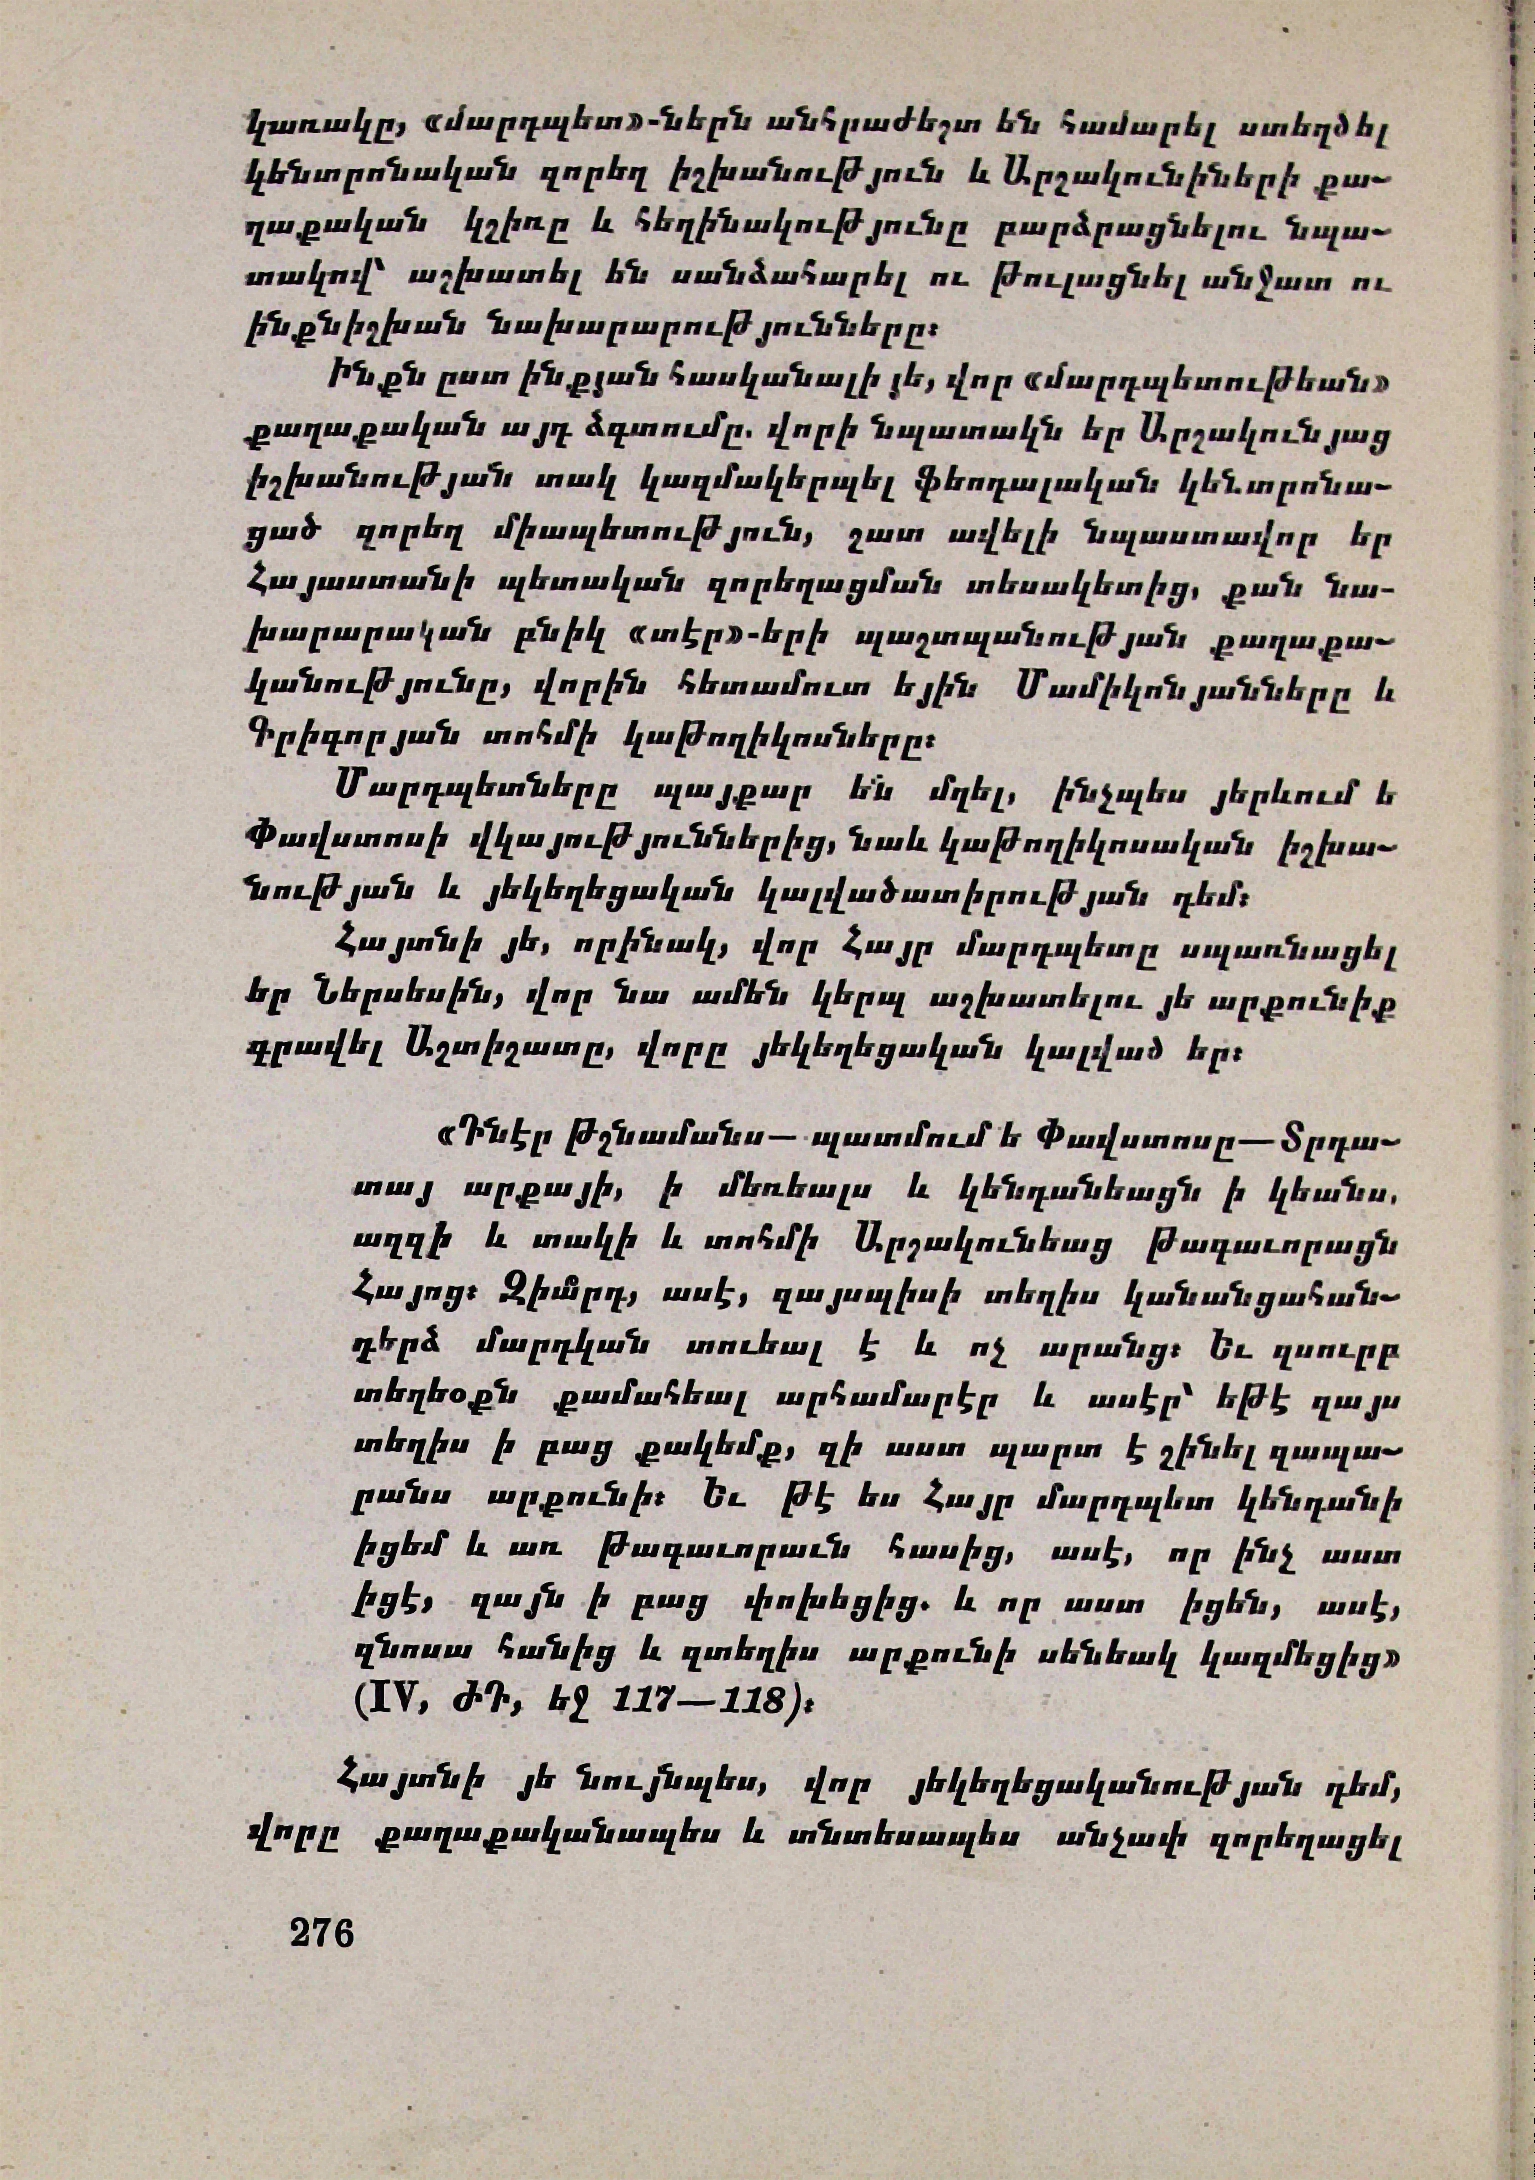 կառակը, «մարդպետ»-ներն անհրաժեշտ են համարել ստեղծել
կենտրոնական զորեղ իշխանություն և Արշակունիների քա-
ղաքական կշիռը և հեղինակությունը բարձրացնելու նպա-
տակով՝ աշխատել են սանձահարել ու թուլացնել անջատ ու
ինքնիշխան նախարարությունները։
Ինքն ըստ ինքյան հասկանալի յե, վոր «մարդպետութեան»
քաղաքական այդ ձգտումը. վորի նպատակն եր Արշակունյաց
իշխանության տակ կազմակերպել ֆեոդալական կենտրոնա-
ցած զորեղ միապետություն, շատ ավելի նպաստավոր եր
Հայաստանի պետական զորեղացման տեսակետից, քան նա-
խարարական բնիկ «տէր»-երի պաշտպանության քաղաքա-
կանությունը, վորին հետամուտ եյին Մամիկոնյանները և
Գրիգորյան տոհմի կաթողիկոսները։
Մարդպետները պայքար են մղել, ինչպես յերևում ե
Փավստոսի վկայություններից, նաև կաթողիկոսական իշխա-
նության և յեկեղեցական կալվածատիրության դեմ։
Հայտնի յե, որինակ, վոր Հայր մարդպետը սպառնացել
եր Ներսեսին, վոր նա ամեն կերպ աշխատելու յե արքունիք
գրավել Աշտիշատը, վորը յեկեղեցական կալված եր։
«Դնէր թշնամանս— պատմում ե Փավստոսը—Տրդա-
տայ արքայի, ի մեռեալս և կենդանեացն ի կեանս.
աղզի և տակի և տոհմի Արշակունեաց թագաւորացն
Հայոց։ Զիա՞րդ, ասէ, զայսպիսի տեղիս կանանցահան-
դերձ մարդկան տուեալ է և ոչ արանց։ Եւ զսուրբ
տեղեօքն քամահեալ արհամարէր և ասէր՝ եթէ զայս
տեղիս ի բաց քակեմք, զի աստ պարտ է շինել զապա-
րանս արքունի։ Եւ թէ ես Հայր մարդպետ կենդանի
իցեմ և առ թագաւորաւն հասից, ասէ, որ ինչ աստ
իցէ, զայն ի բաց փոխեցից. և որ աստ իցեն, ասէ,
զնոսա հանից և զտեղիս արքունի սենեակ կազմեցից»
(IV, ԺԴ, եջ 117—118)։
Հայտնի յե նույնպես, վոր յեկեղեցականության դեմ,
վորը քաղաքականապես և տնտեսապես անչափ զորեղացել
276